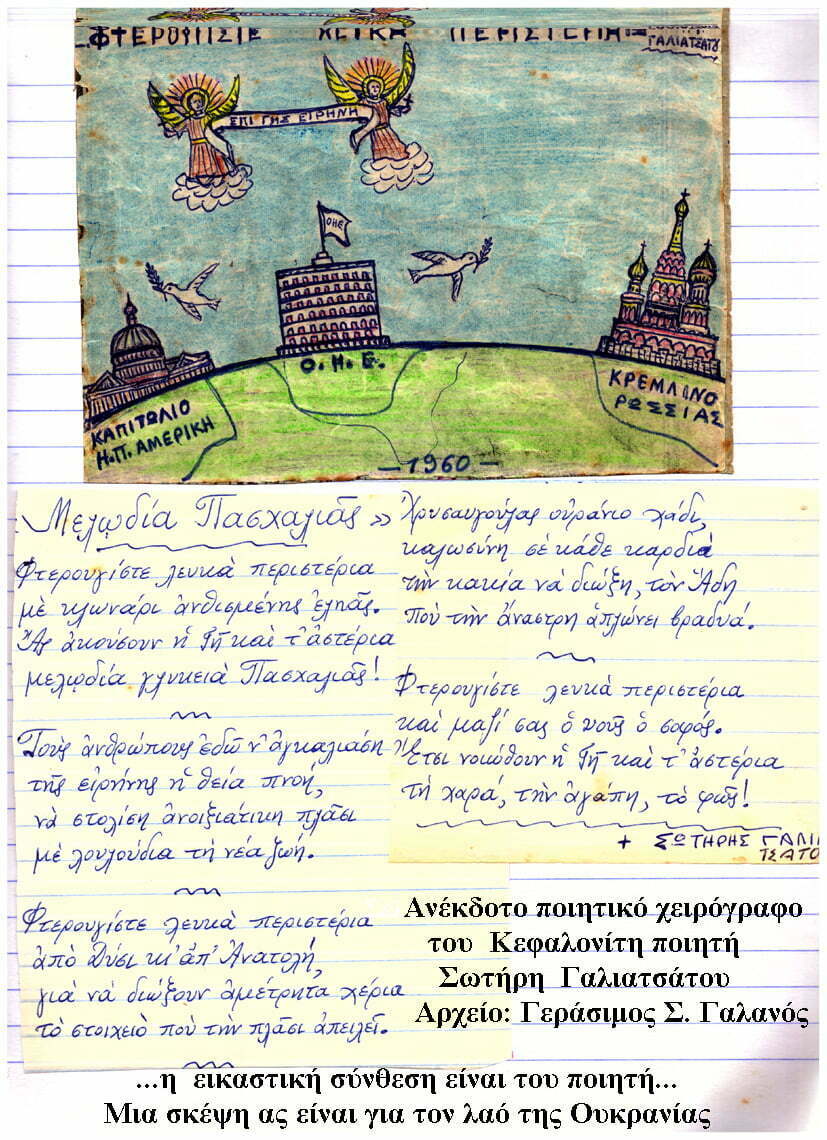 ΦΤΕΡΟΥΓΙΣΤΕ ΛΕΥΚΑ ΠΕΡΙΣΤΕΡΙΑ
ΓΑΛΙΑΤΣΑΤΟΥ
ΕΠΙ ΓΗΣ ΕΙΡΗΝΗ
ΟΗΕ
Ο.Η.Ε.
ΚΑΠΙΤΩΛΙΟ
Η.Π. ΑΜΕΡΙΚΗ
ΚΡΕΜΛΙΝΟ
ΡΩΣΣΙΑΣ
—1960—
Μελωδία Πασχαλιᾶς »
Φτερουγίστε λευκὰ περιστέρια
μὲ κλωνάρι ἀνθισμένης ἐληᾶς.
Ἄς ἀκούσουν ἡ Γῆ καὶ τ' ἀστέρια
μελωδία γλυκειὰ Πασχαλιᾶς!
Τοὺς ἀνθρώπους ἐδῶ ν' ἀγκαλιάση
τῆς εἰρήνης ἡ θεία πνοή,
νὰ στολίση ἀνοιξιάτικη πλᾶσι
μὲ λουλούδια τὴ νέα ζωή.
Φτερουγίστε λευκὰ περιστέρια
ἀπὸ Δύσι κι' ἀπ' Ἀνατολή,
γιὰ νὰ διώξουν ἀμέτρητα χέρια
τὸ στοιχειὸ ποὺ τὴν πλᾶσι ἀπειλεῖ.
Χρυσαυγούλας οὐράνιο χάδι,
καλωσύνη σὲ κάθε καρδιὰ
τὴν κακία νὰ διώξη, τὸν Ἅδη
Ποὺ τὴν ἄναστρη ἁπλώνει βραδυά.
Φτερουγίστε λευκὰ περιστέρια
καὶ μαζί σας ὁ νοῦς ὁ σοφός.
Ἔτσι νοιώθουν ἡ Γῆ καὶ τ' ἀστέρια
τὴ χαρά, τὴν ἀγάπη, τὸ φῶς!
+ ΣΩΤΗΡΗΣ ΓΑΛΙΑ
ΤΣΑΤΟ
Ανέκδοτο ποιητικό χειρόγραφο
του Κεφαλονίτη ποιητή
Σωτήρη Γαλιατσάτου
Αρχείο: Γεράσιμος Σ. Γαλανός
...η εικαστική σύνθεση είναι του ποιητή...
Μια σκέψη ας είναι για τον λαό της Ουκρανίας